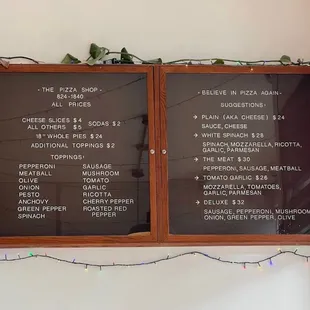 - THE PIZZA SHOP -
824-1840
ALL PRICES
CHEESE SLICES $ 4
ALL OTHERS $ 5
SODAS $ 2
18" WHOLE PIES $ 24
ADDITIONAL TOPPINGS $ 2
TOPPINGS:
PEPPERONI SAUSAGE
MEATBALL MUSHROOM
OLIVE TOMATO
ONION GARLIC
PESTO RICOTTA
ANCHOVY CHERRY PEPPER
GREEN PEPPER ROASTED RED
SPINACH PEPPER
- BELIEVE IN PIZZA AGAIN -
SUGGESTIONS:
→ PLAIN (AKA CHEESE) $ 24
SAUCE, CHEESE
→ WHITE SPINACH $ 29
SPINACH, MOZZARELLA, RICOTTA,
GARLIC, PARMESAN
→ THE MEAT $ 30
PEPPERONI, SAUSAGE, MEATBALL
→ TOMATO GARLIC $ 26
MOZZARELLA, TOMATOES,
GARLIC, PARMESAN
→ DELUXE $ 32
SAUSAGE, PEPPERONI, MUSHROOM
ONION, GREEN PEPPER, OLIVE